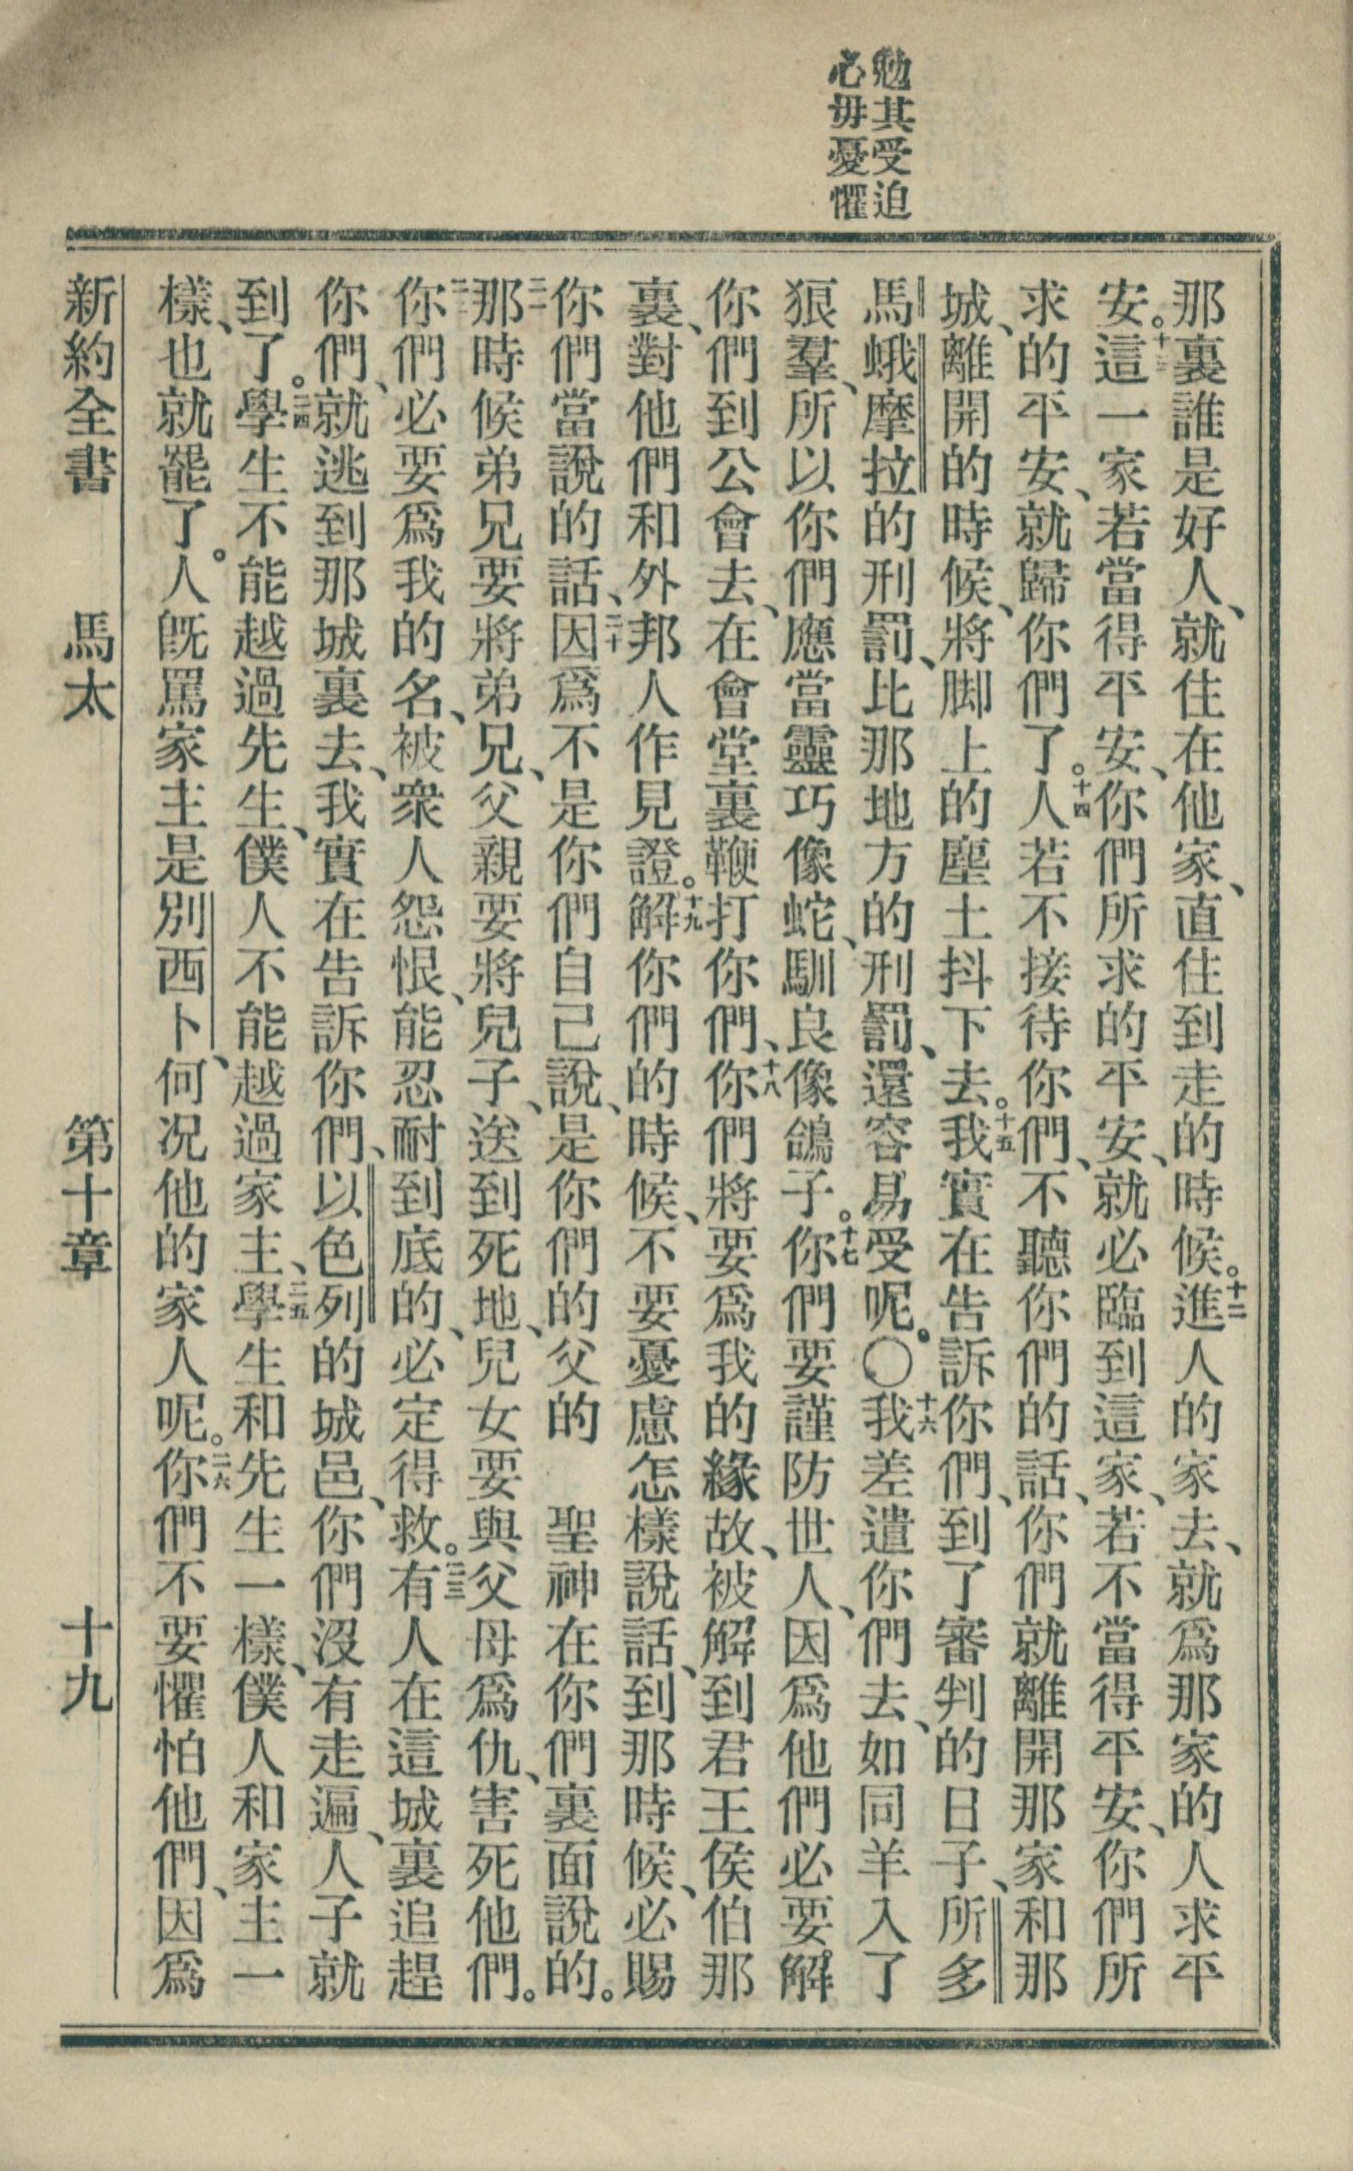 勉其受迫
心毋憂懼
那裏誰是好人、就住在他家、直住到走的時候。十二進人的家去、就爲那家的人求平
安。十三這一家若當得平安、你們所求的平安、就必臨到這家、若不當得平安、你們所
求的平安、就歸你們了。十四人若不接待你們、不聽你們的話、你們就離開那家和那
城、離開的時候、將脚上的塵土抖下去。十五我實在告訴你們、到了審判的日子、所多
馬蛾摩拉的刑罰、比那地方的刑罰、還容易受呢。〇十六我差遣你們去、如同羊入了
狼羣、所以你們應當靈巧像蛇、馴良像鴿子。十七你們要謹防世人、因爲他們必要解
你們到公會去、在會堂裏鞭打你們、十八你們將要爲我的緣故、被解到君王侯伯那
裏、對他們和外邦人作見證。十九解你們的時候、不要憂慮怎樣說話、到那時候、必賜
你們當說的話、二十因爲不是你們自己說、是你們的父的　聖神在你們裏面說的。
二一那時候弟兄要將弟兄、父親要將兒子、送到死地、兒女要與父母爲仇、害死他們。
二二你們必要爲我的名、被衆人怨恨、能忍耐到底的、必定得救。二三有人在這城裏追趕
你們、就逃到那城裏去、我實在告訴你們、以色列的城邑、你們沒有走遍、人子就
到了。二四學生不能越過先生、僕人不能越過家主、二五學生和先生一樣、僕人和家主一
樣、也就罷了。人旣罵家主是別西卜、何况他的家人呢。二六你們不要懼怕他們、因爲
新約全書　馬太　第十章　十九